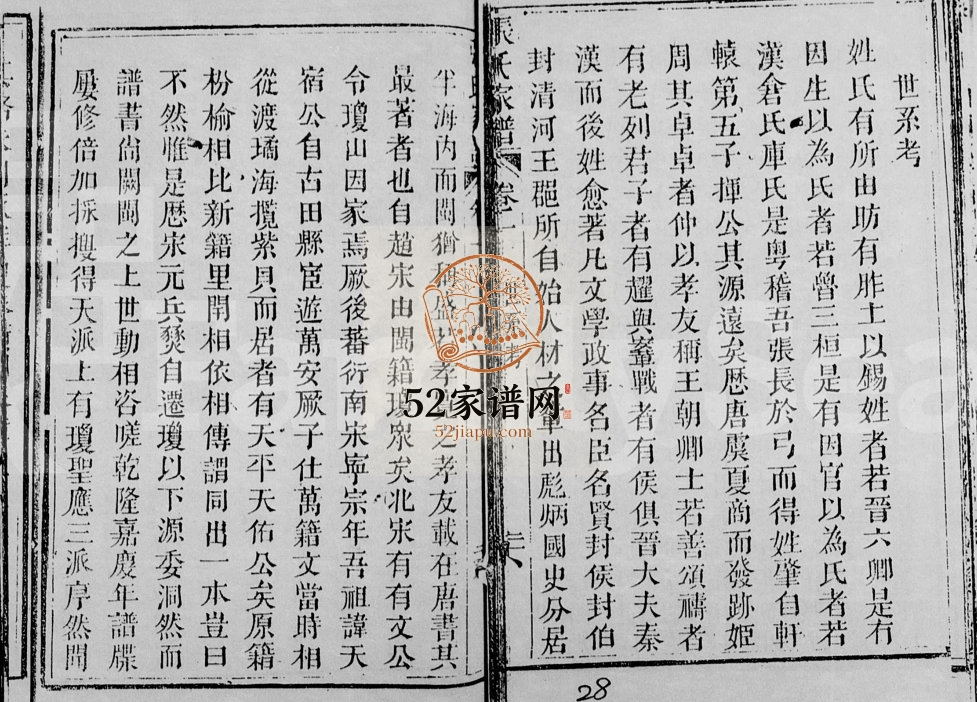 世系考
姓氏有所由昉有胙土以錫姓者若晉六卿是有
因生以為氏者若魯三桓是有因官以為氏者若
漢倉氏庫氏是粵稽吾張長於弓而得姓肇自軒
轅第五子揮公其源遠矣歷唐虞夏商而發跡姬
周其卓卓者仲以孝友稱王朝卿士若善頌禱者
有老列君子者有趯與鼞戰者有侯俱晉大夫秦
漢而後姓愈著凡文學政事名臣名賢封侯封伯
封清河王郡所自始人材之輩出彪炳國史分居
張氏家譜 卷一 世系考
半海內而閩猶稱盛 孝 之孝友載在唐書其
最著者也自趙宋由閩籍瓊眾矣北宋有有文公
令瓊山因家焉厥後蕃衍南宋寧宗年吾祖諱天
宿公自古田縣宦遊萬安厥子仕萬籍文當時相
從渡璚海攬紫貝而居者有天平天佑公矣原籍
枌榆相比新籍里閈相依相傳謂同出一本豈曰
不然惟是歷宋元兵燹自遷瓊以下源委洞然而
譜書尚闕閩之上世動相咨嗟乾隆嘉慶年譜牒
屢修倍加採搜得天派上有瓊聖應三派序然閩
52家谱网
52jiapu.com
28